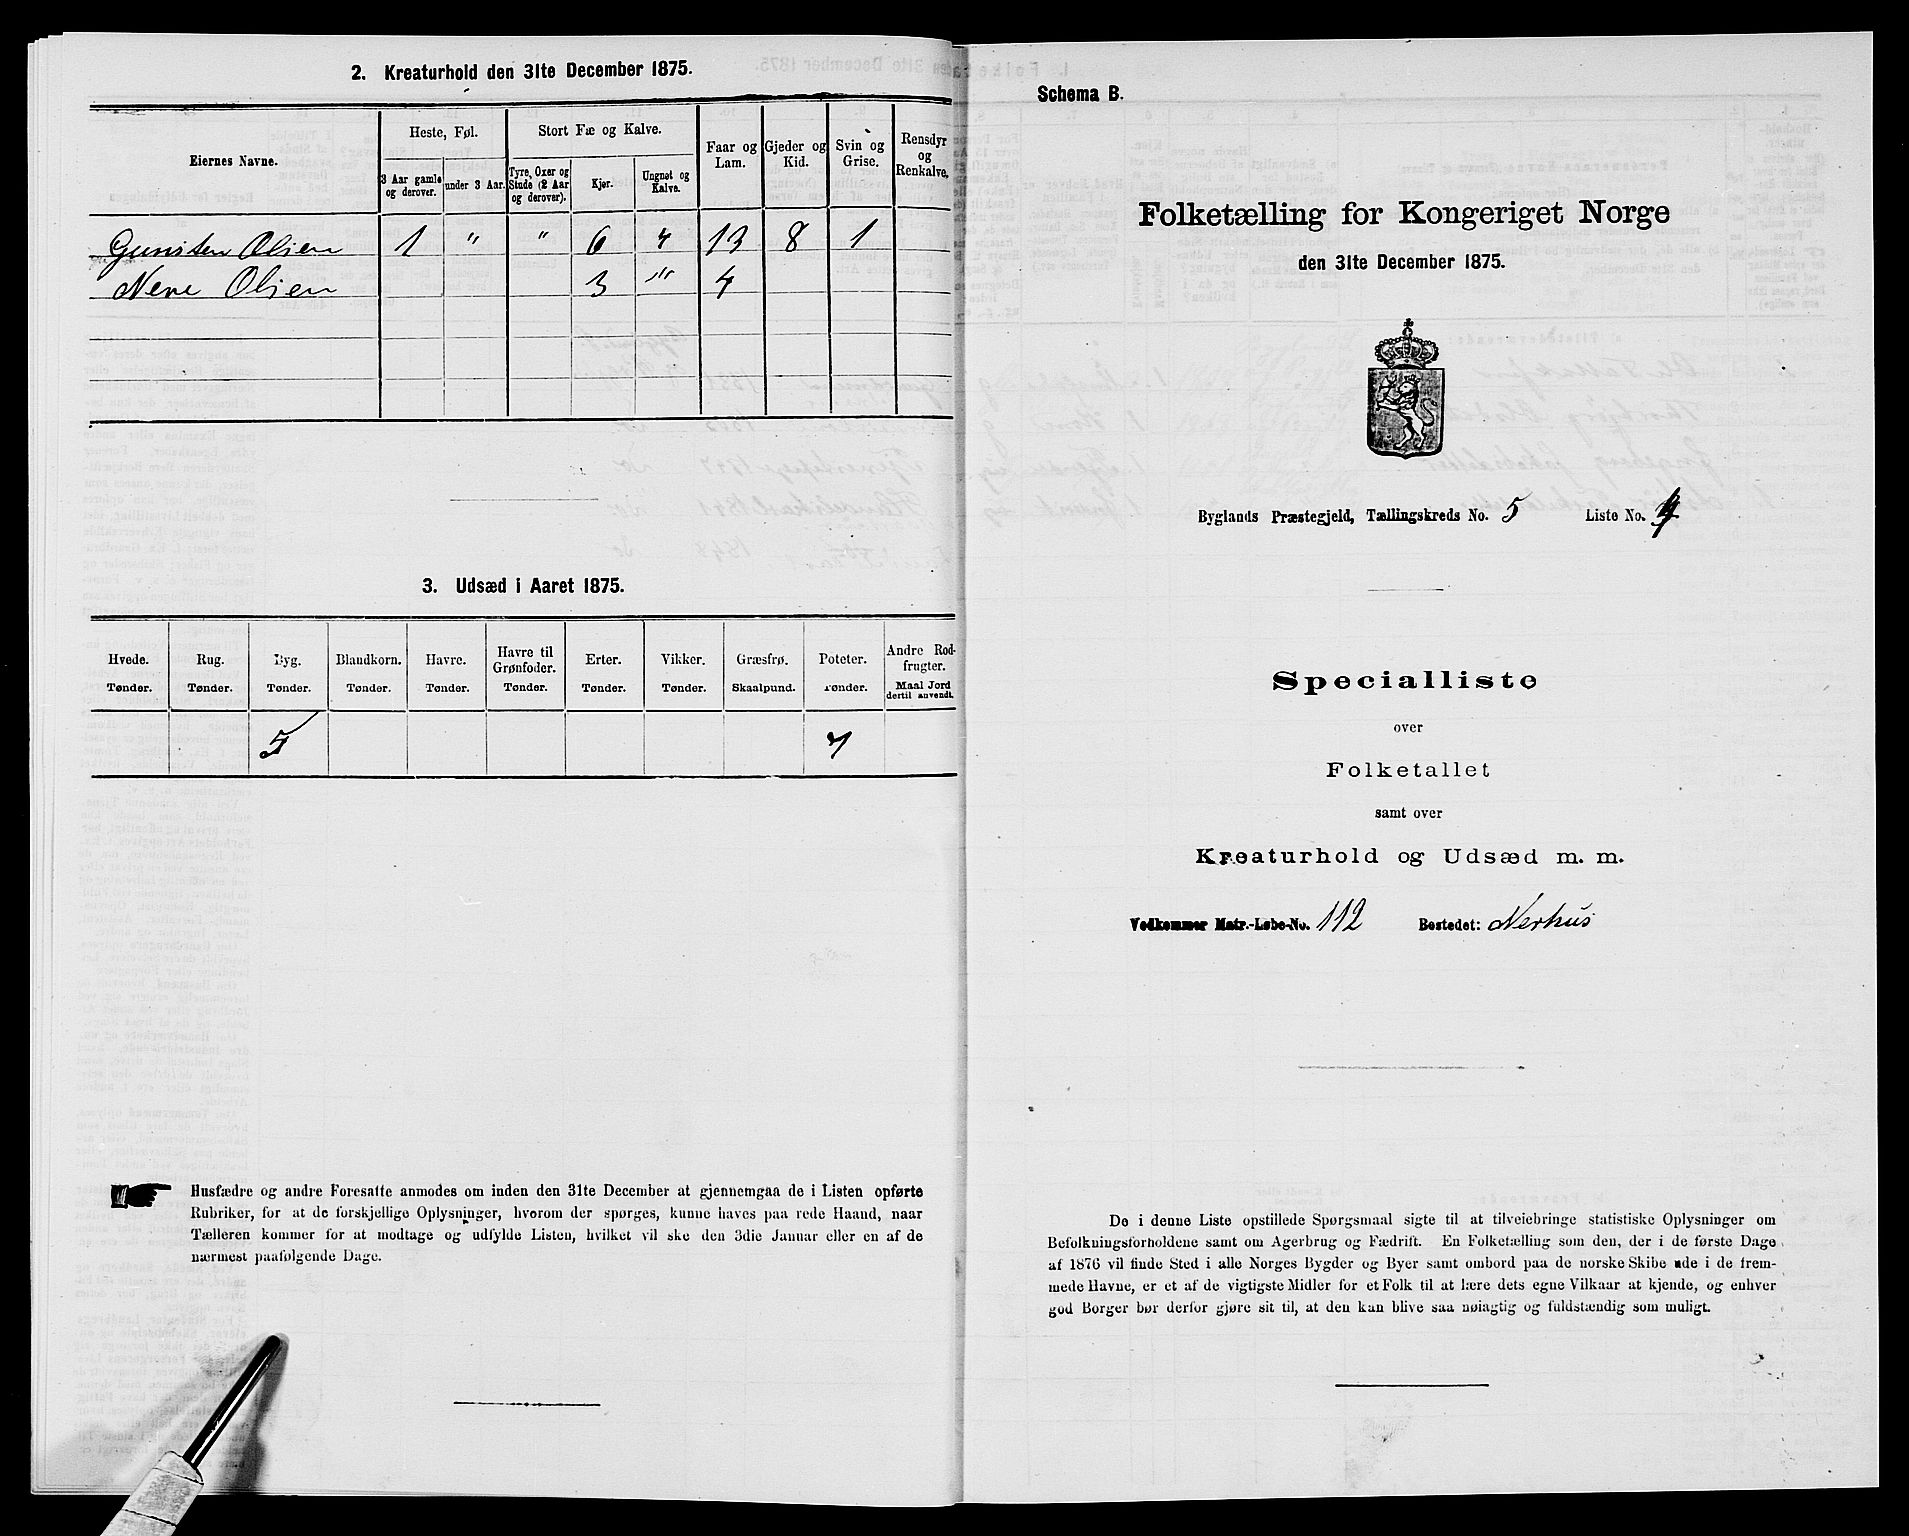 2. Kreaturhold den 31te December 1875.
Eiernes Navne.
Heste, Føl.
3 Aar gamle og derover.
under 3 Aar.
Stort Fæ og Kalve.
Tyre, Oxer og Stude (2 Aar og derover).
Kjør.
Ungnøt og Kalve.
Faar og Lam.
Gjeder og Kid.
Svin og Grise.
Rensdyr og Renkalve.
Gunsten Olsen 1 " " 6 4 13 8 1
Olsen 3 " 4
3. Udsæd i Aaret 1875.
Hvede. Rug. Byg. Blandkorn. Havre. Havre til Grønfoder. Erter. Vikker. Græsfrø. Poteter. Andre Rodfrugter.
Tønder. Tønder. Tønder. Tønder. Tønder. Tønder. Tønder. Tønder. Skaalpund. Tønder. Maal Jord dertil anvendt.
5 7
Husfædre og andre Foresatte anmodes om inden den 31te December at gjennemgaa de i Listen opførte
Rubriker, for at de forskjellige Oplysninger, hvorom der spørges, kunne haves paa rede Haand, naar
Tælleren kommer for at modtage og udfylde Listen, hvilket vil ske den 3die Januar eller en af de
nærmest paafølgende Dage.
Schema B.
Folketælling for Kongeriget Norge
den 31te December 1875.
Byglands Præstegjeld, Tællingskreds No. 5 Liste No.
Specialliste
over
Folketallet
samt over
Kreaturhold og Udsæd m. m.
Vedkommer Matr.-Løbe-No. 112 Bostedet: Nerhus
De i denne Liste opstillede Spørgsmaal sigte til at tilveiebringe statistiske Oplysninger om
Befolkningsforholdene samt om Agerbrug og Fædrift. En Folketælling som den, der i de første Dage
af 1876 vil finde Sted i alle Norges Bygder og Byer samt ombord paa de norske Skibe ude i de frem-
mede Havne, er et af de vigtigste Midler for et Folk til at lære dets egne Vilkaar at kjende, og enhver
god Borger bør derfor gjøre sit til, at den kan blive saa nøiagtig og fuldstændig som muligt.